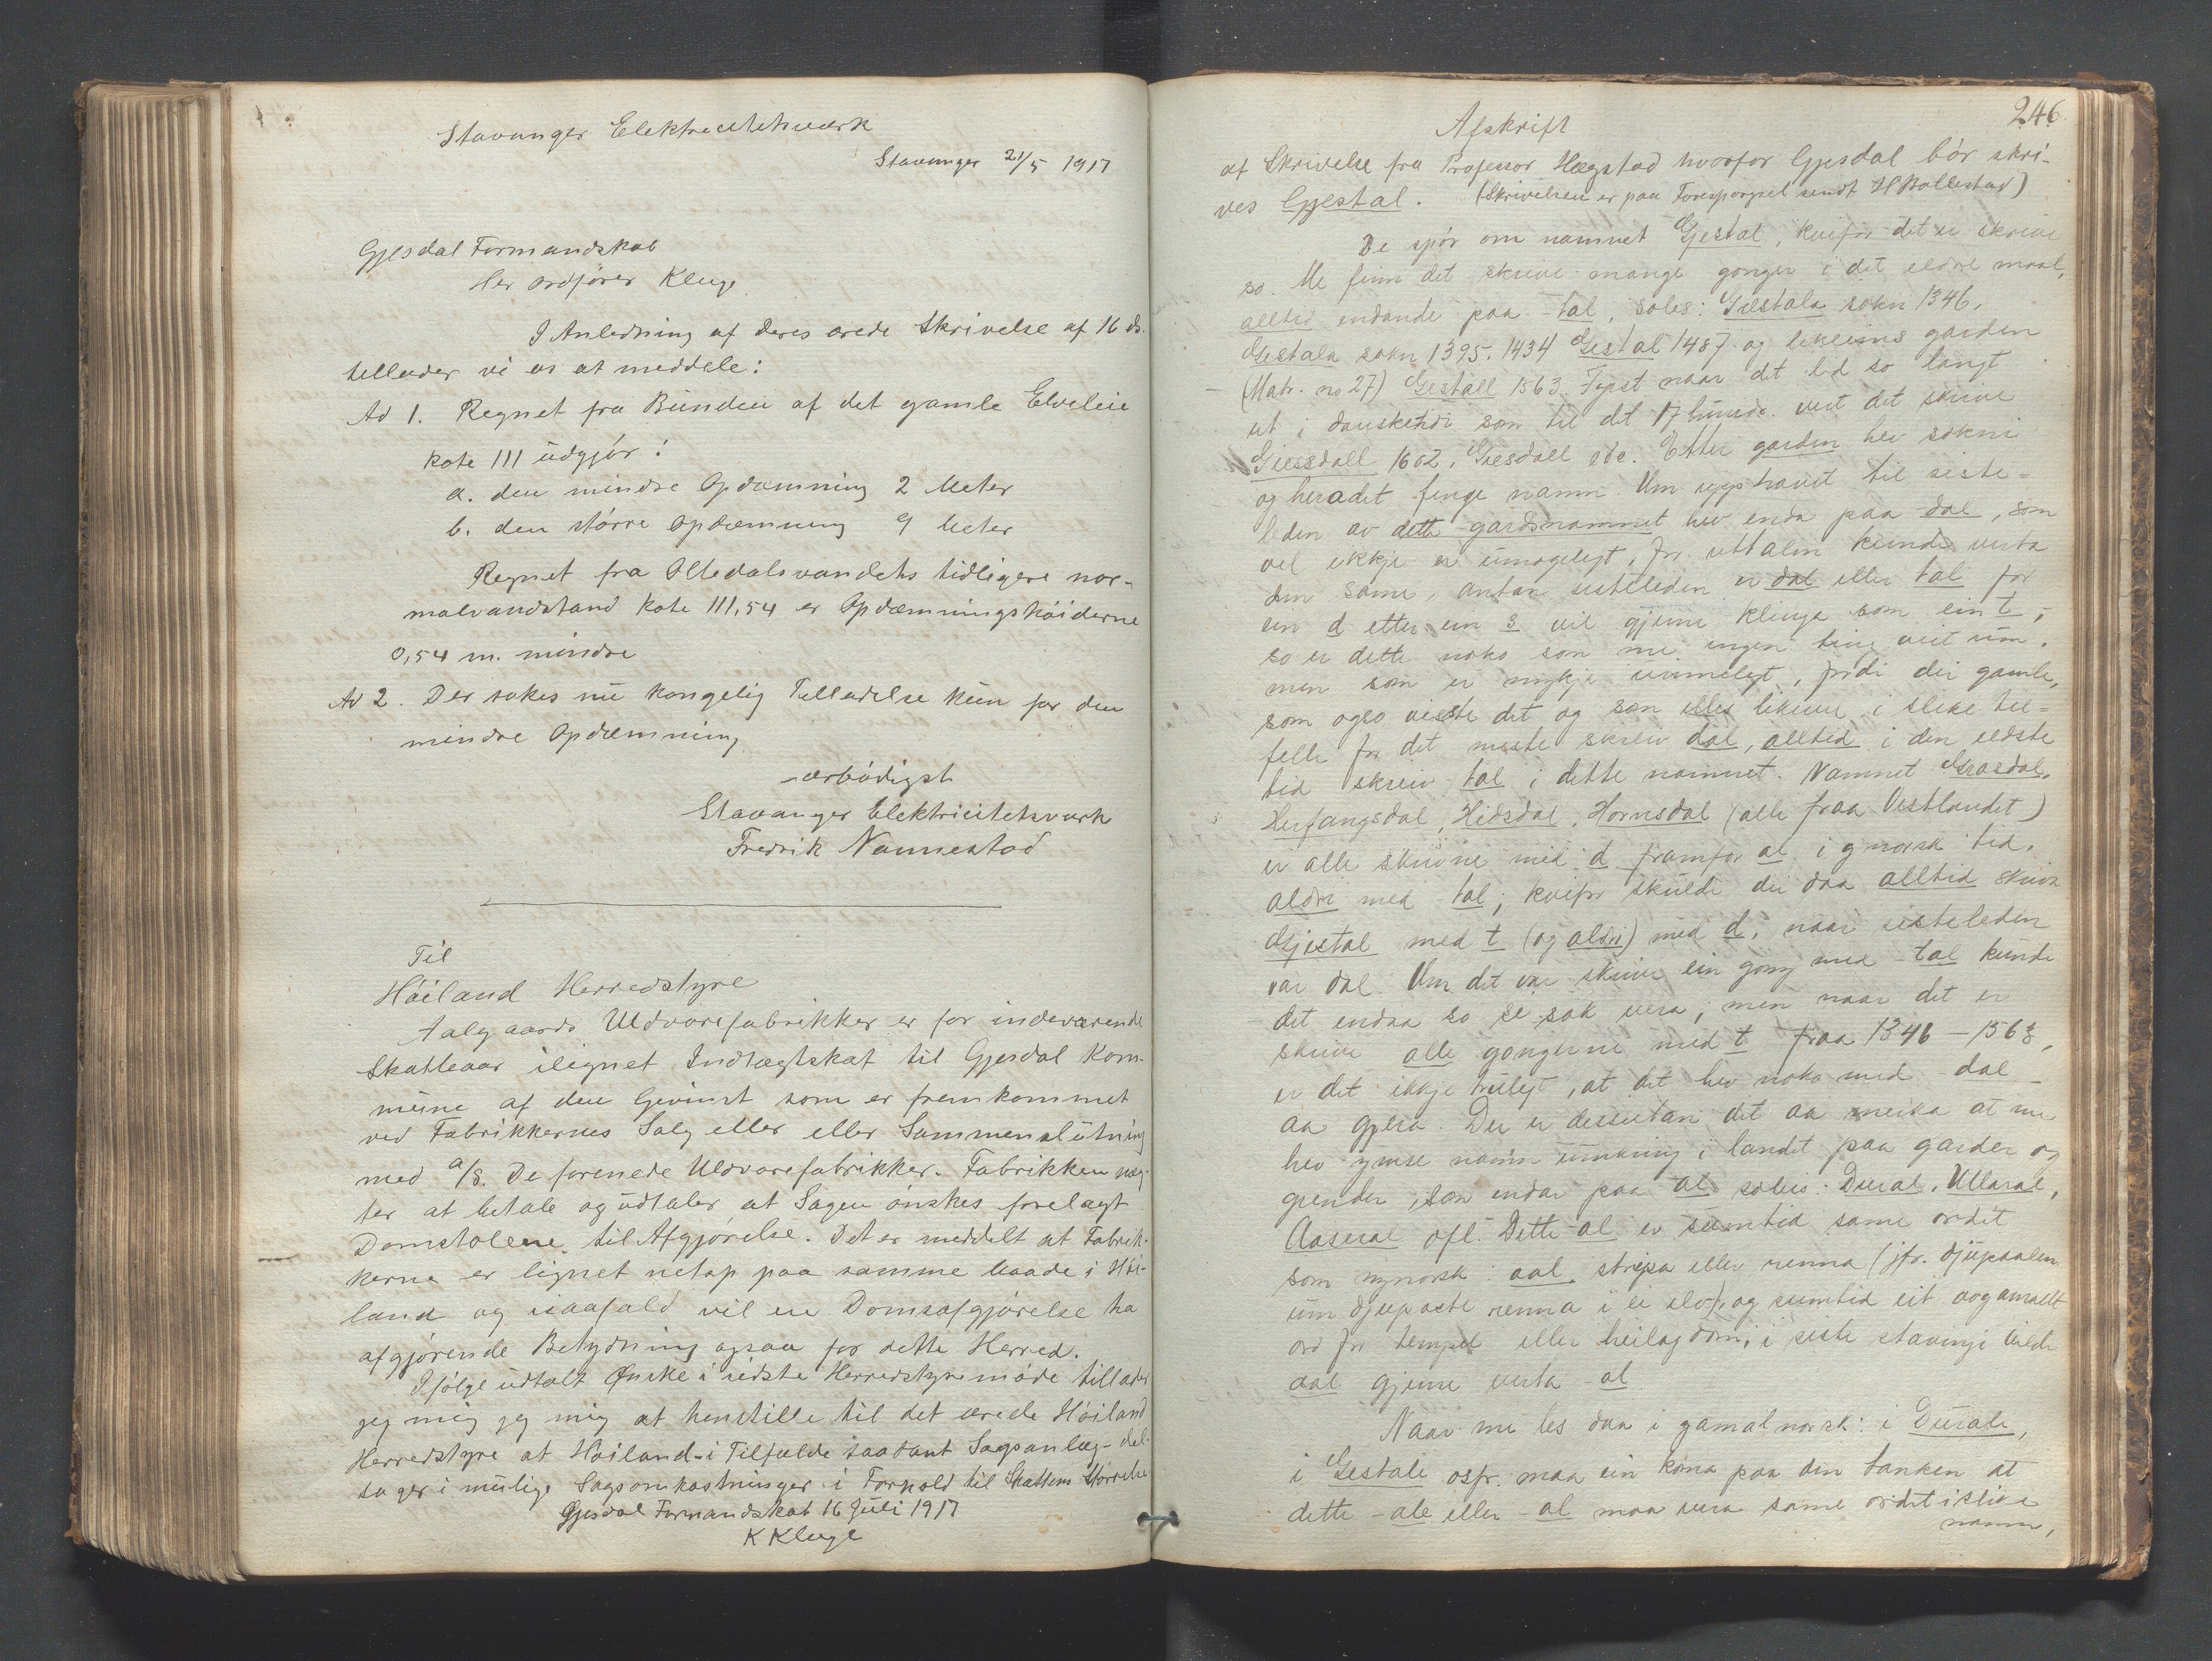 Stavanger Elektricitetsværk
Stavanger 21/5 1917
Gjesdal Formandskab
Her ordfører Kluge
I Anledning af Deres ærede Skrivelse af 16 ds.
tillader vi os at meddele:
Ad 1. Regnet fra Bunden af det gamle Elveleie
kote 111 udgjør:
a. den mindre Opdæmning 2 Meter
b. den større Opdæmning 9 Meter
Regnet fra Oltedalsvandets tidligere nor-
malvandstand kote 111,54 er Opdæmningshøiderne
0,54 m. mindre
Ad 2. Der søkes nu kongelig Tilladelse kun for den
mindre Opdæmning
ærbødigst
Stavanger Elektricitetsværk
Fredrik Nannestad
Til
Høiland Herredstyre
Aalgaards Uldvarefabrikker er for indeværende
Skatteaar ilignet Indtægtskat til Gjesdal Kom-
mune af den Gevinst som er fremkommet
ved Fabrikkernes Salg eller eller Sammenslutning
med a/s. De forenede Uldvarefabrikker. Fabrikken næg-
ter at betale og udtaler at Sagen ønskes forelagt
Domstolene til Afgjørelse. Det er meddelt at Fabrik-
kerne er lignet netop paa samme Maade i Høi-
land og isaafald vil en Domsafgjørelse ha
afgjørende Betydning ogsaa for dette Herred.
Ifølge udtalt Ønske i sidste Herredstyremøde tillader
jeg mig jeg mig at henstille til det ærede Høiland
Herredstyre at Høiland i Tilfælde saadant Sagsanlæg- del-
tager i mulige Sagsomkostninger i Forhold til Skattens Størrelse
Gjesdal Formandskab 16 Juli 1917
K Kluge
246.
Afskrift
af Skrivelse fra Professor Hægstad hvorfor Gjesdal bør skri-
ves Gjestal. (Skrivelsen er paa Forespørgsel sendt H Bollestad)
De spør om namnet Gjestal, kvifor det er skrive
so. Me finn det skrive mange gonger i det eldre maal,
alltid endande paa -tal, soleis: Giestala sokn 1346.
Gestala sokn 1395. 1434 Gestal 1487 og likeeins garden
(Matr. no 27) Gestall 1563. Fyrst naar det lid so langt
ut i dansketidi som til det 17 hundr. vert det skrive
Giessdall 1602, Giesdall ofl. Etter garden hev sokni
og heradet fenge namn. Um upphavet til siste-
leden av dette gardsnamnet hev enda paa dal, som
vel ikkje er umogelegt, for uttalen kunde verta
den same, antan sisteleden er dal eller tal for
ein d etter ein s vil gjerne klinga som ein t,
so er dette noko som me ingen ting veit um.
men som er mykje urimelegt, fordi dei gamle,
som ogso visste det og som elles likevel i slike til-
felle for det meste skreiv dal, alltid i den eldste
tid skreiv -tal i dette namnet. Namnet Grasdal,
Herfangsdal, Hidsdal, Hornsdal (alle fraa Vestlandet)
er alle skrivne med d framfor al i g norsk tid.
aldri med -tal; kvifor skulde dei daa alltid skriva
Gjestal med t (og aldri) med d, naar sisteleden
var dal. Um det var skrive ein gong med -tal kunde
det endaa so si sak vera; men naar det er
skrive alle gongerne med t fraa 1346 - 1563,
er det ikkje truleg, at det hev noko med -dal
aa gjera. Der er dessutan det aa merka at me
hev ymse namn umkring i landet paa garder og
grender, som endar paa al soleis: Dural, Ullaral,
Aaseral ofl. Dette -al er sumtid same ordet
som nynorsk: aal, stripa eller renna (jfr. djupaalen
um djupaste renna i ei elv), og sumtid eit avgamalt
ord for tempel eller heilagdom, i siste stavingi vilde
aal gjerne verta -al
Naar me les daa i gamalnorsk: i Durale,
i Gestale osfr. maa ein koma paa den tanken at
dette -ale eller -al maa vera same ordet i slike
namn,